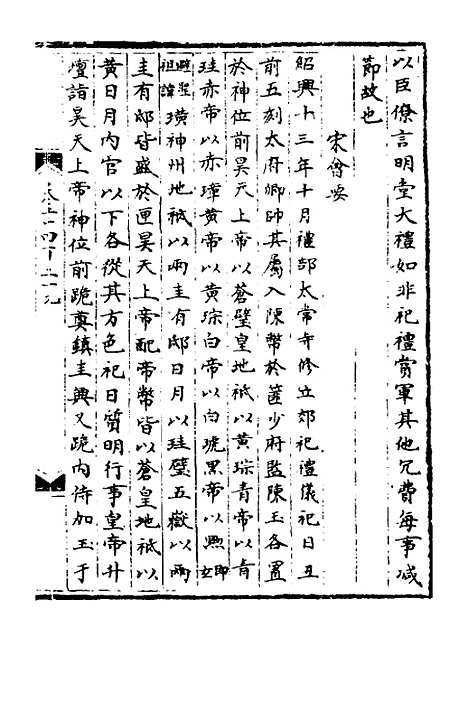 以臣僚言明堂大禮如非祀禮賞軍其他冗費每事减
節故也
宋會要
紹興十三年十月禮部太常寺修立郊祀禮儀祀日丑
前五刻太府卿帥其屬入陳幣於篚少府監陳玉各置
於神位前昊天上帝以蒼璧皇地祇以黄琮青帝以青
珪赤帝以赤璋黄帝以黄琮白帝以白琥黑帝以𤣥
璜神州地祇以两圭有邸日月以珪璧五嶽以两
圭有邸皆盛於匣昊天上帝配帝幣皆以蒼皇地祇以
黄日月内官以下各從其方色祀日質明行事皇帝升
壇詣昊天上帝神位前跪奠鎮圭興又跪内侍加玉于